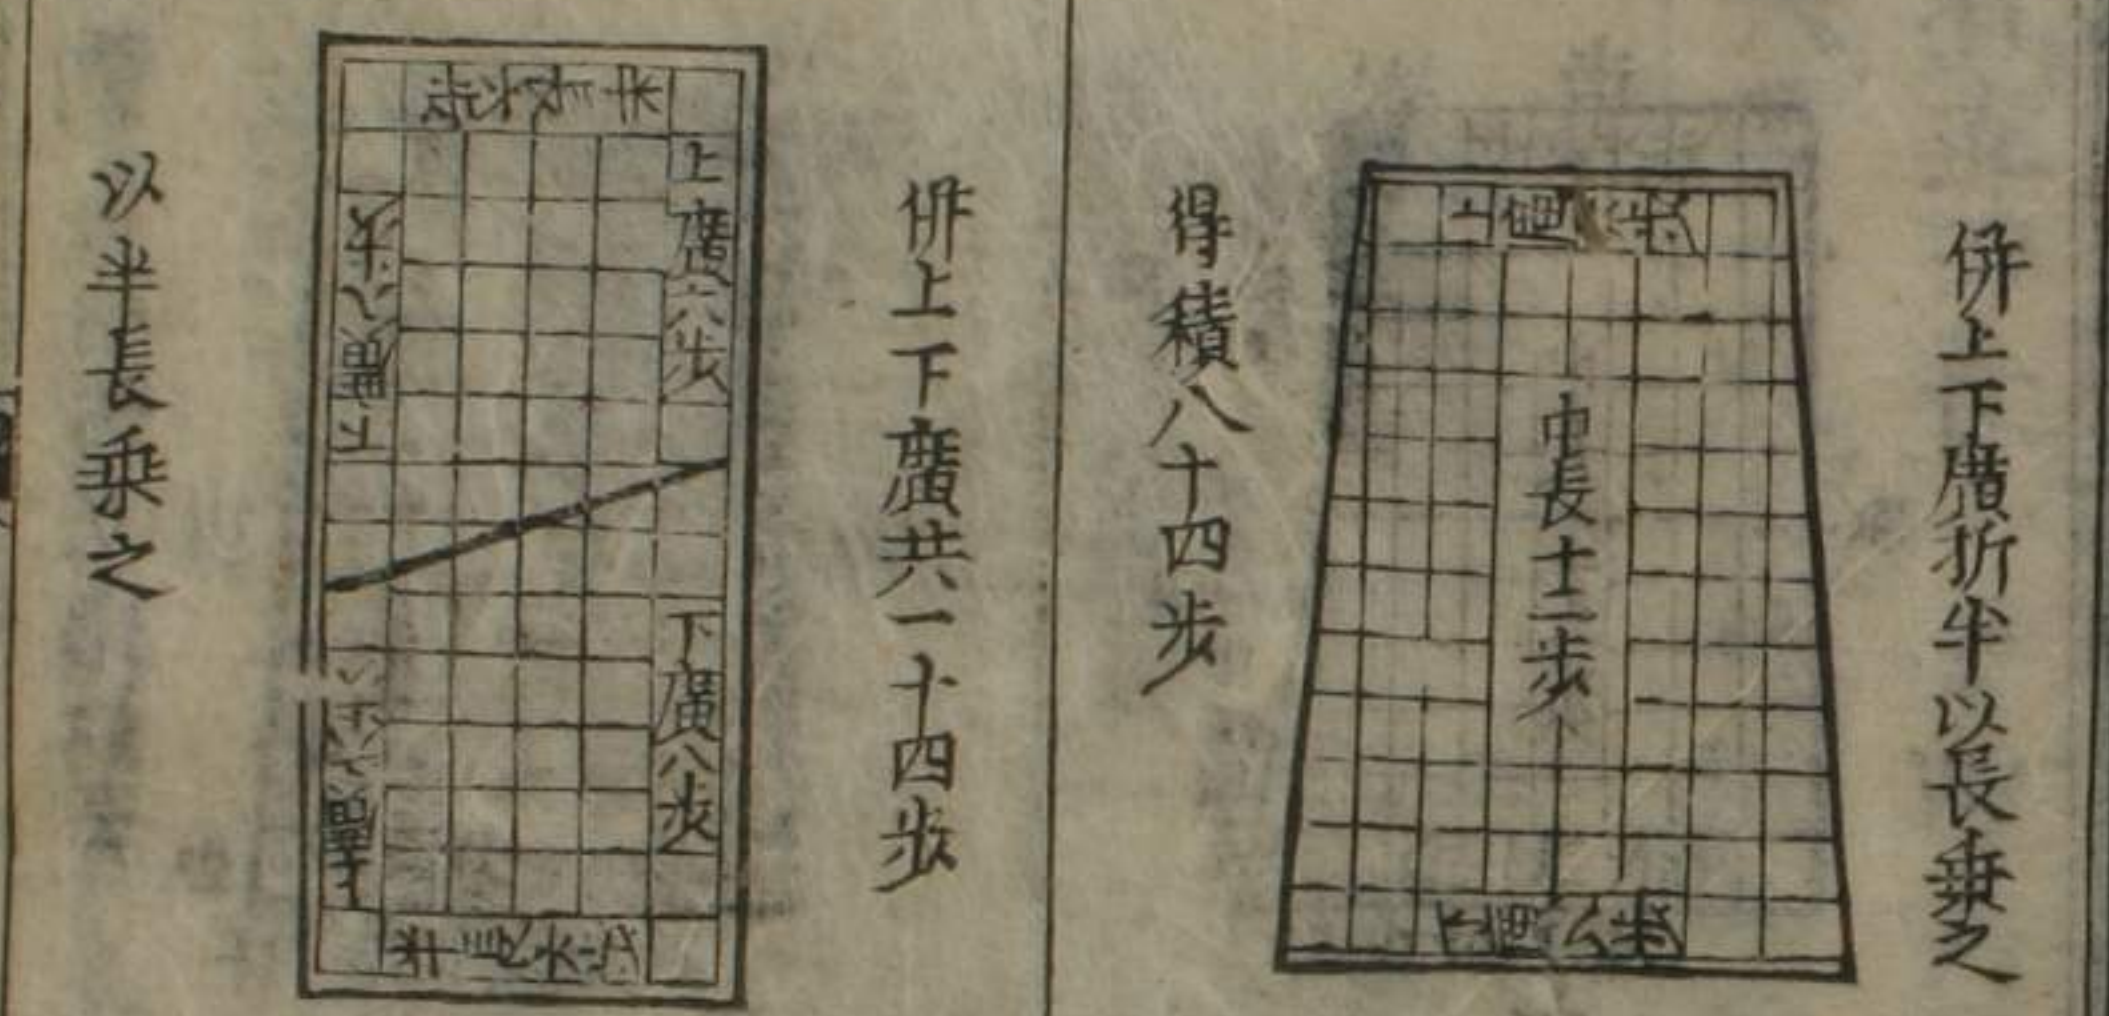 倂上下廣折半以長乗之
上廣六步
中長十二步
下廣八步
得積八十四步
倂上下廣共一十四步
半長六步
上廣六步
下廣八步
下廣八步
上廣六步
半長六步
以半長乗之